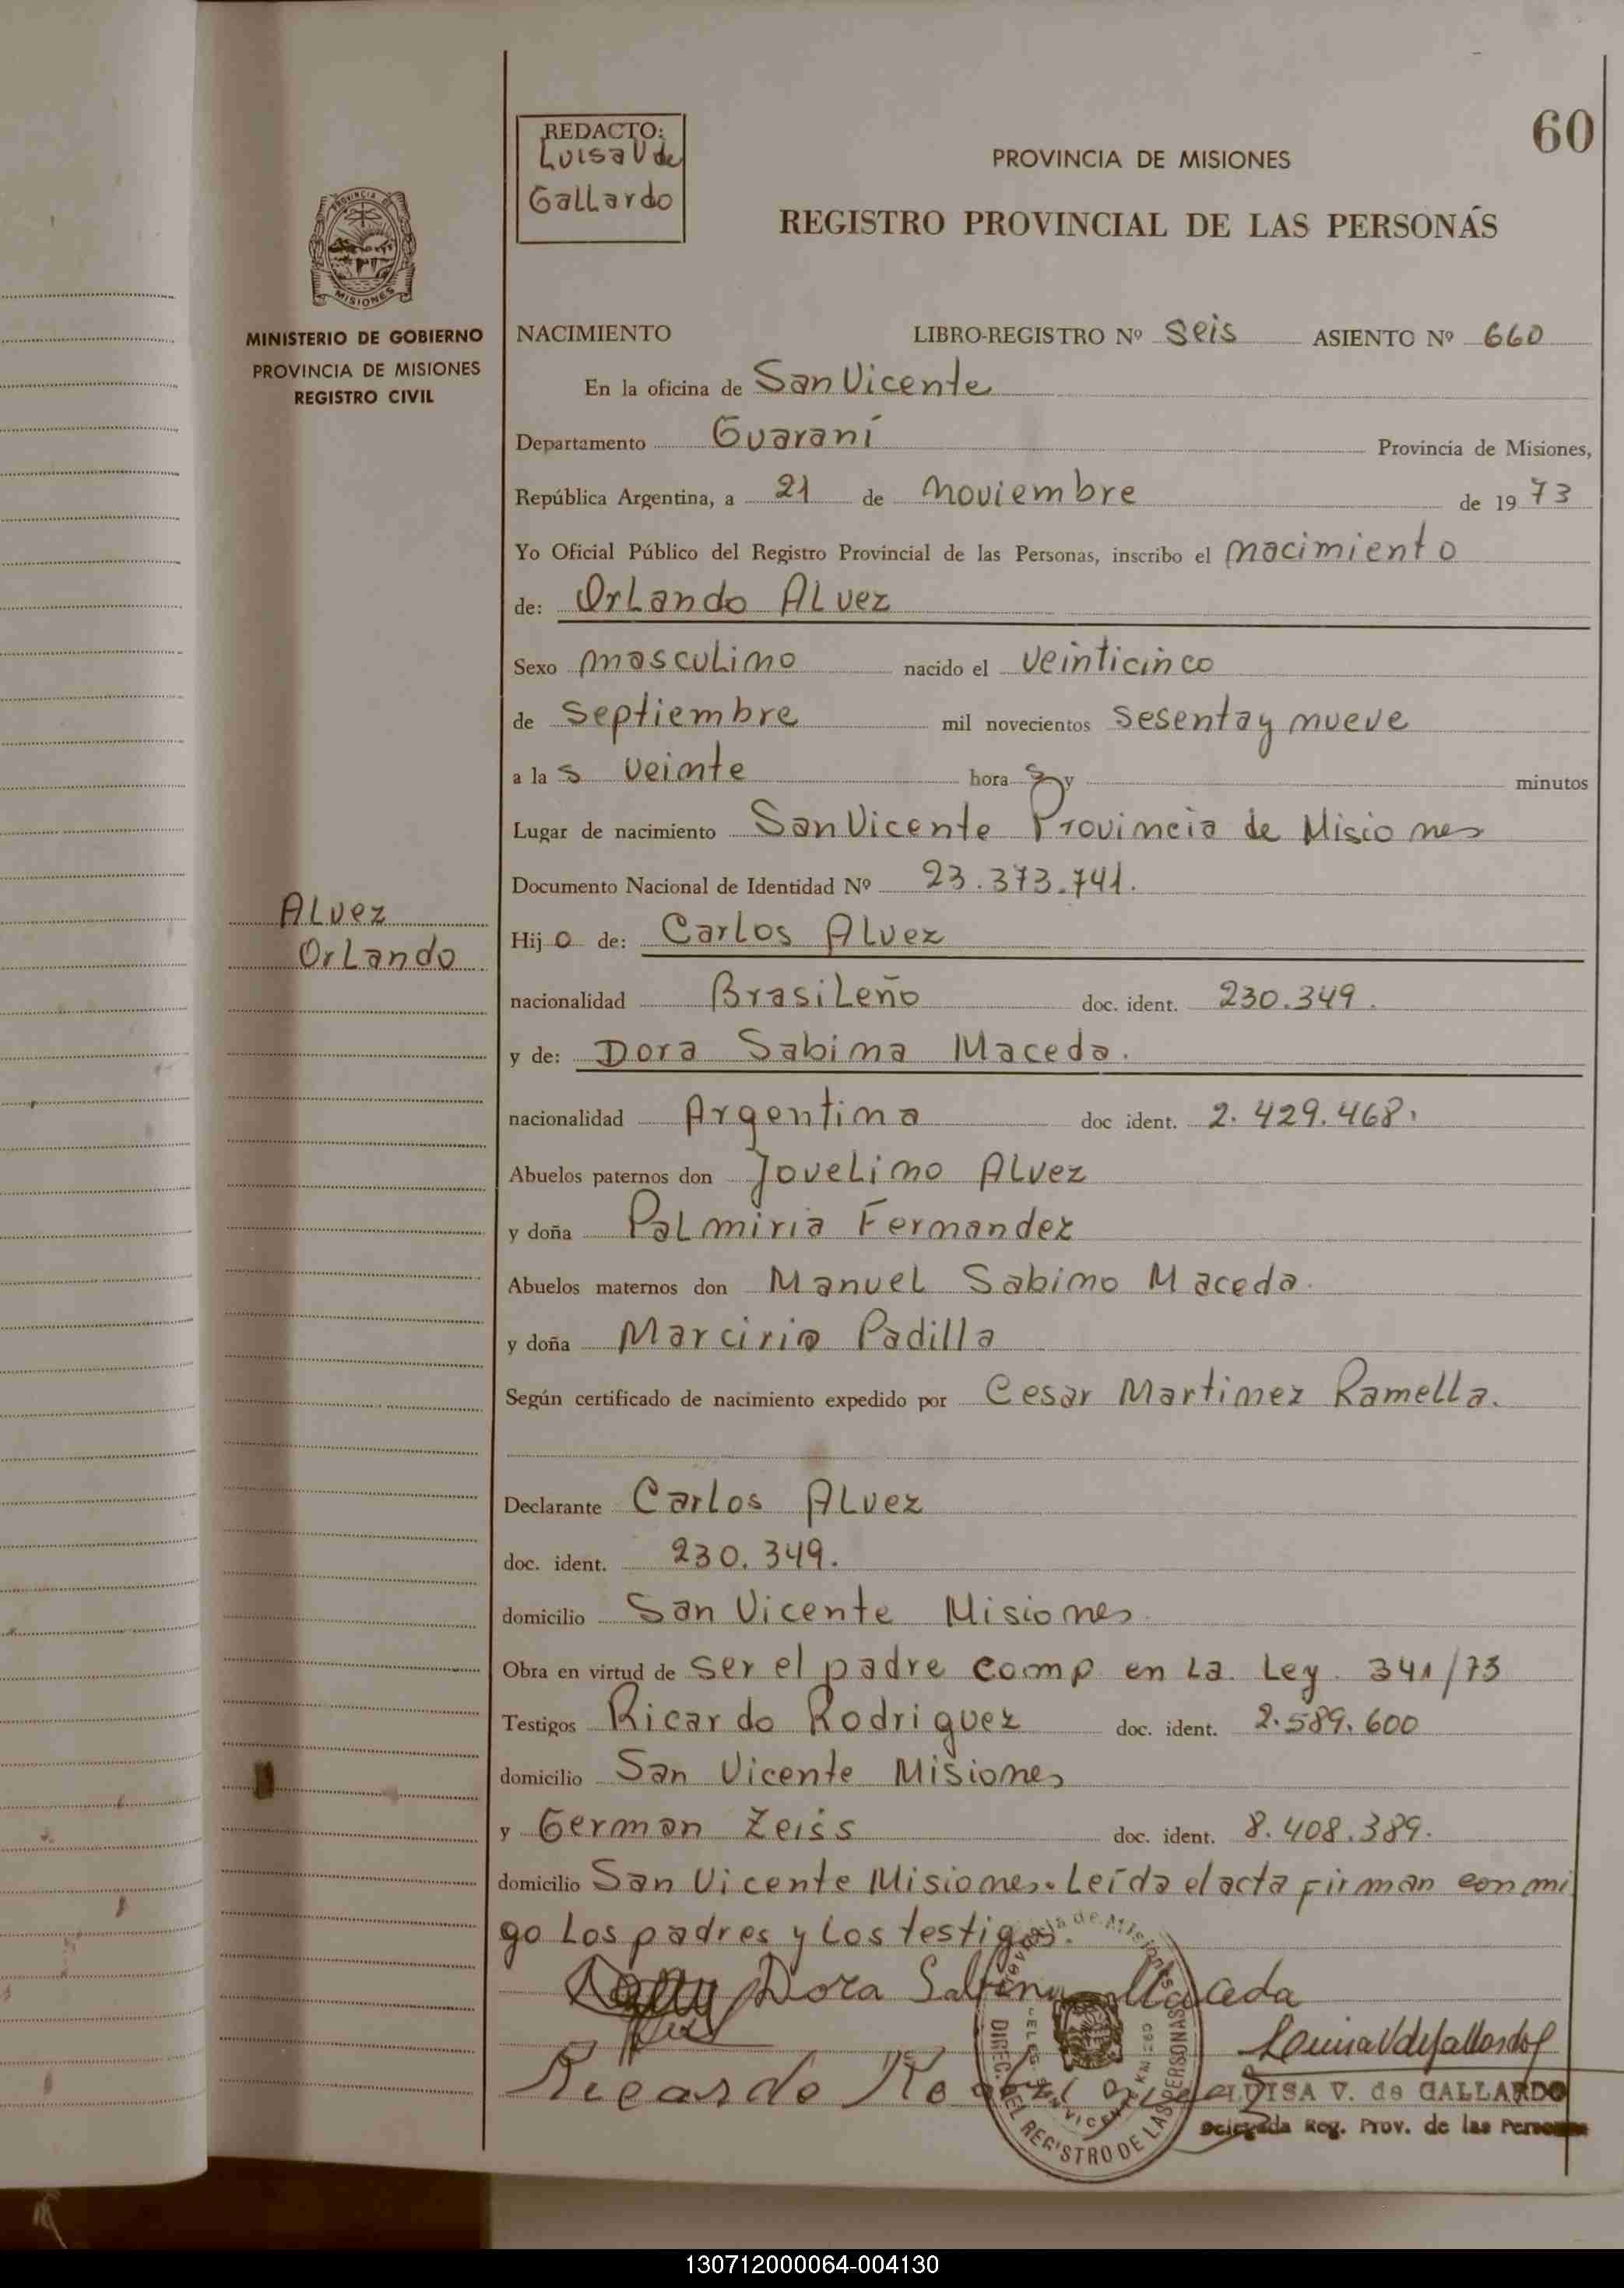 60
REDACTO:
Luisa V de
Gallardo
PROVINCIA DE MISIONES
REGISTRO PROVINCIAL DE LAS PERSONAS
PROVINCIA DE
MISIONES
MINISTERIO DE GOBIERNO
PROVINCIA DE MISIONES
REGISTRO CIVIL
NACIMIENTO LIBRO-REGISTRO Nº Seis ASIENTO Nº 660
En la oficina de San Vicente
Departamento Guaraní Provincia de Misiones,
República Argentina, a 21 de noviembre de 1973
Yo Oficial Público del Registro Provincial de las Personas, inscribo el nacimiento
de: Orlando Alvez
Sexo masculino nacido el veinticinco
de Septiembre mil novecientos sesenta y nueve
a las veinte horas y minutos
Lugar de nacimiento San Vicente Provincia de Misiones
Documento Nacional de Identidad Nº 23.373.741.
Alvez
Orlando
Hijo de: Carlos Alvez
nacionalidad Brasileño doc. ident. 230.349.
y de: Dora Sabina Maceda.
nacionalidad Argentina doc ident. 2.429.468.
Abuelos paternos don Jovelino Alvez
y doña Palmiria Fernandez
Abuelos maternos don Manuel Sabino Maceda.
y doña Marciria Padilla
Según certificado de nacimiento expedido por Cesar Martinez Ramella.
Declarante Carlos Alvez
doc. ident. 230.349.
domicilio San Vicente Misiones.
Obra en virtud de ser el padre comp. en La Ley. 341/73
Testigos Ricardo Rodriguez doc. ident. 2.589.600
domicilio San Vicente Misiones
y German Zeiss doc. ident. 8.408.389.
domicilio San Vicente Misiones. Leída el acta firman conmi
go los padres y los testigos.
Dora Sabina Maceda
Luisa V de Gallardo
Ricardo Rodriguez
LUISA V. de GALLARDO
Delegada Reg. Prov. de las Personas
Provincia de Misiones
DIREC. DEL REGISTRO DE LAS PERSONAS
130712000064-004130